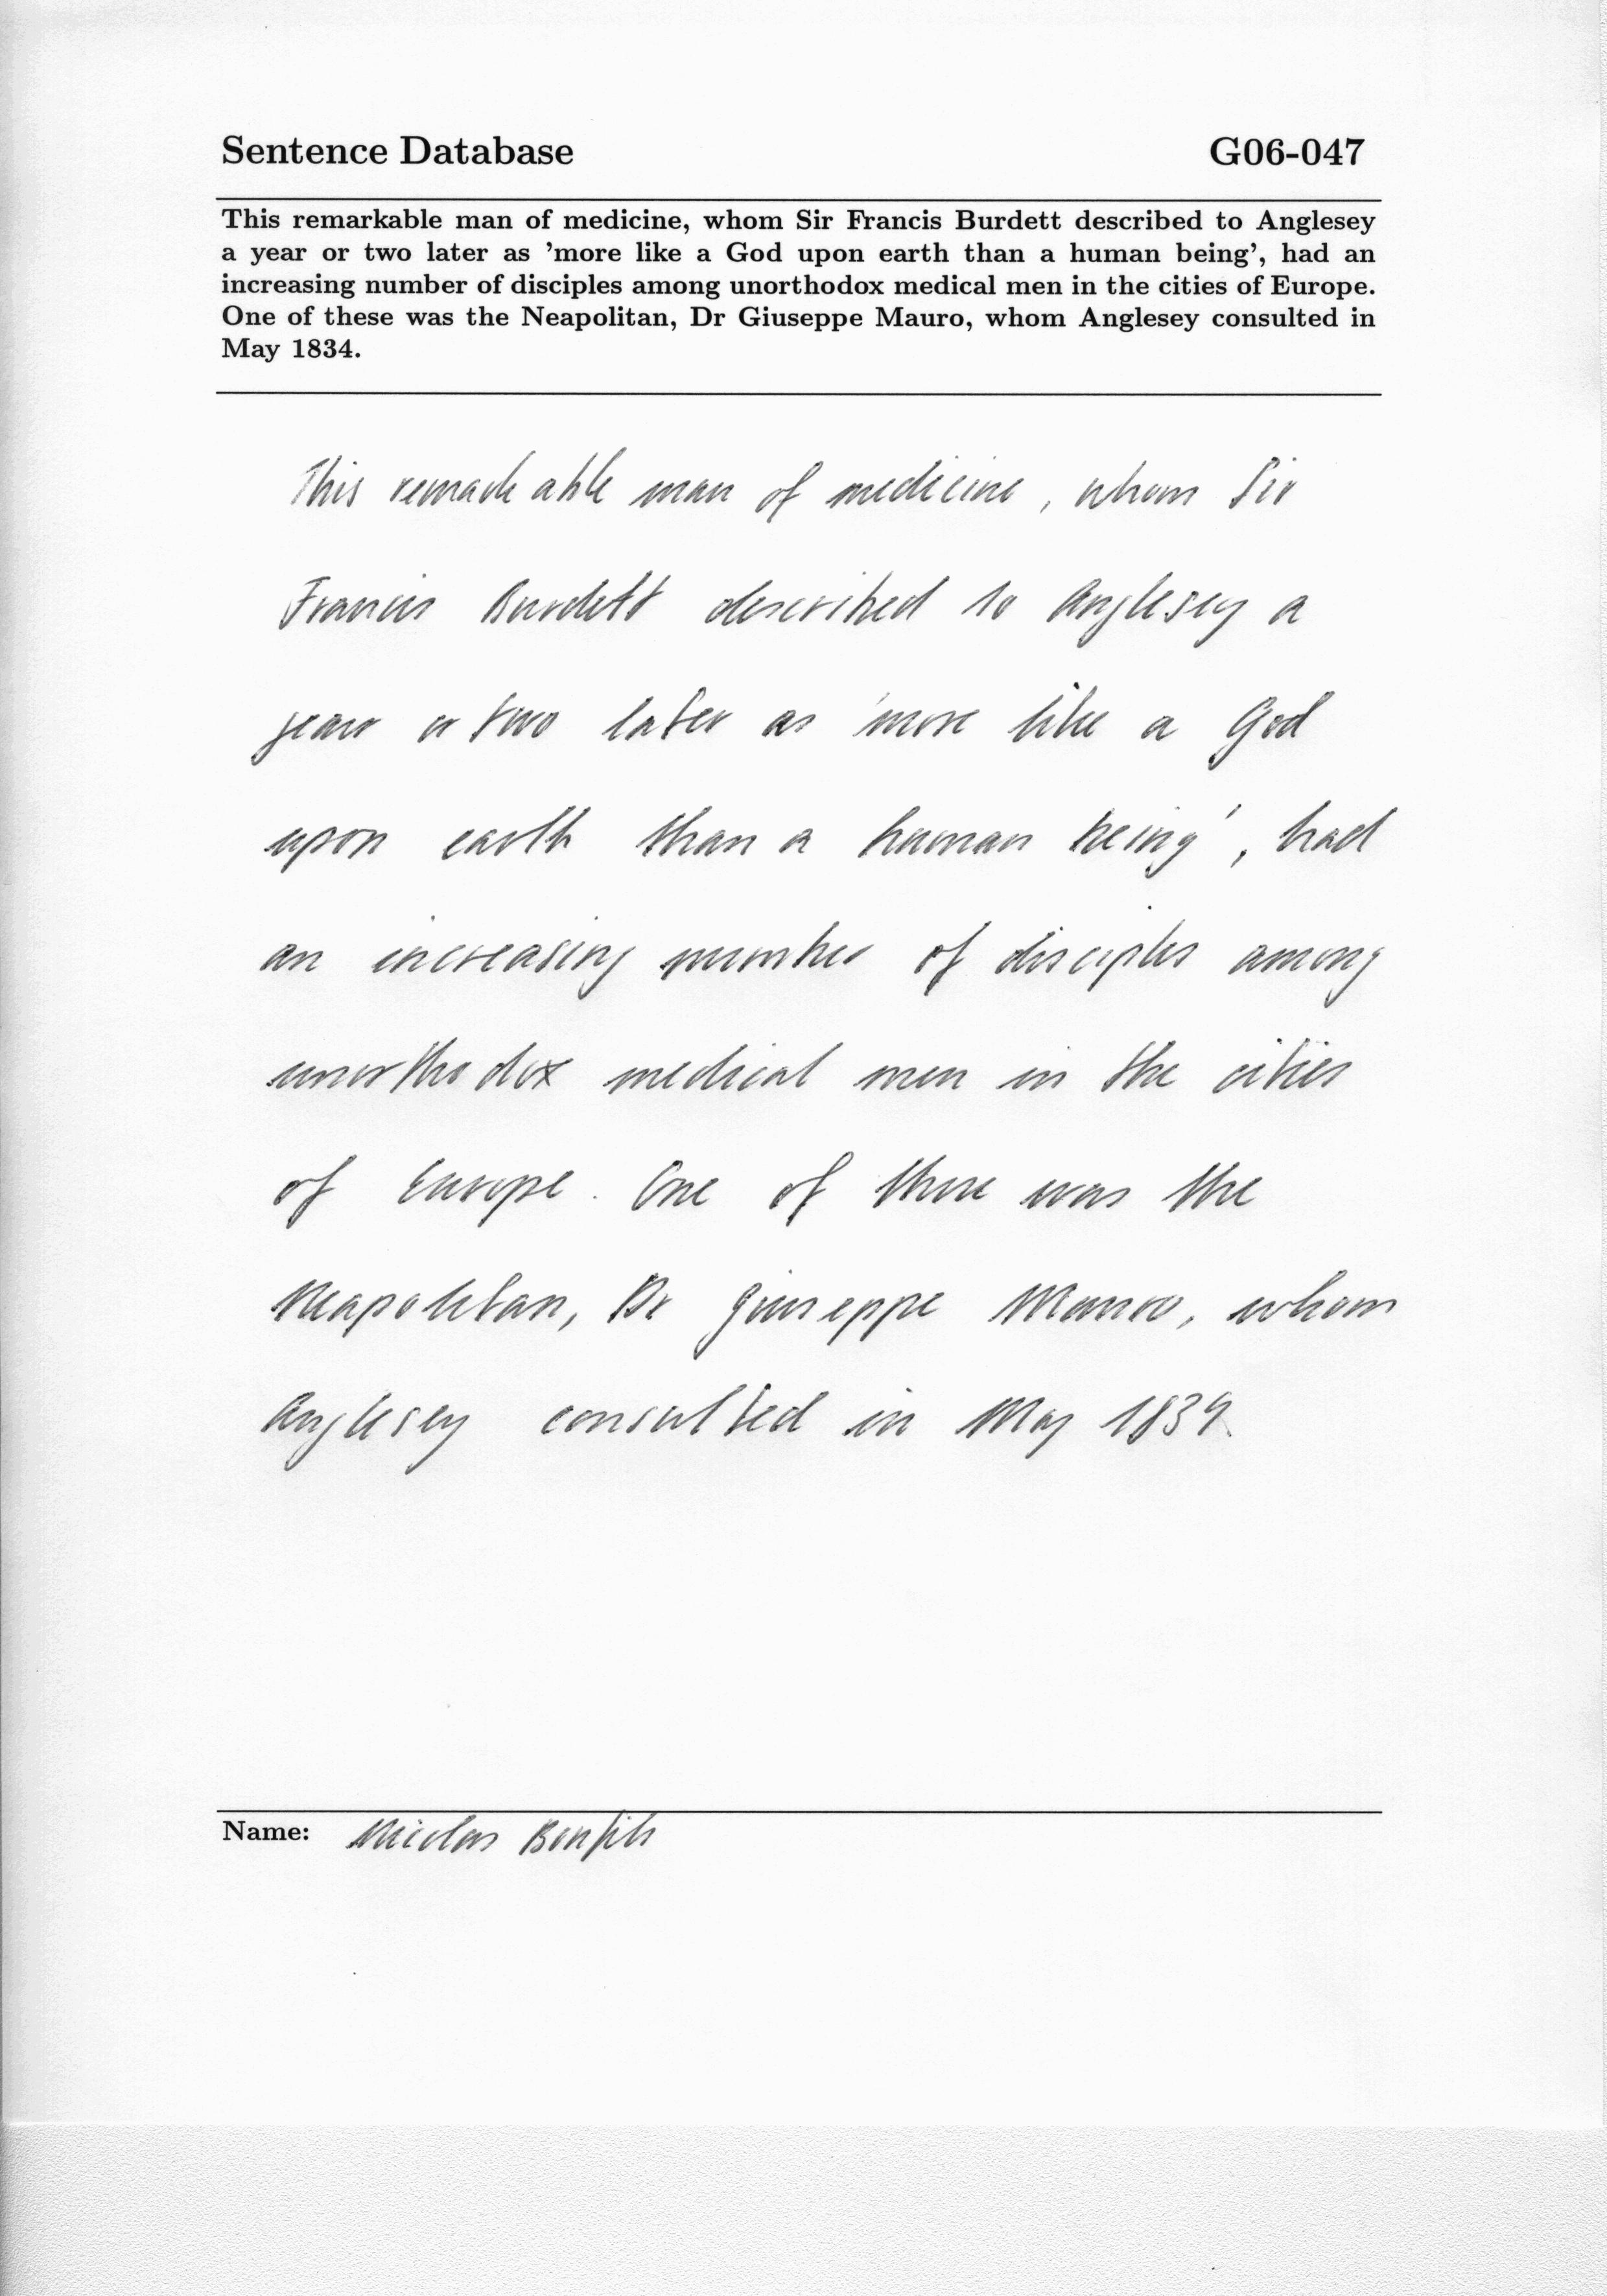 Sentence Database G06-047
This remarkable man of medicine, whom Sir Francis Burdett described to Anglesey
a year or two later as 'more like a God upon earth than a human being', had an
increasing number of disciples among unorthodox medical men in the cities of Europe.
One of these was the Neapolitan, Dr Giuseppe Mauro, whom Anglesey consulted in
May 1834.
This remarkable man of medicine, whom Sir
Francis Burdett described to Anglesey a
year or two later as 'more like a God
upon earth than a human being', had
an increasing number of disciples among
unorthodox medical men in the cities
of Europe. One of these was the
Neapolitan, Dr Giuseppe Mauro, whom
Anglesey consulted in May 1834.
Name: Nicolas Bonfils